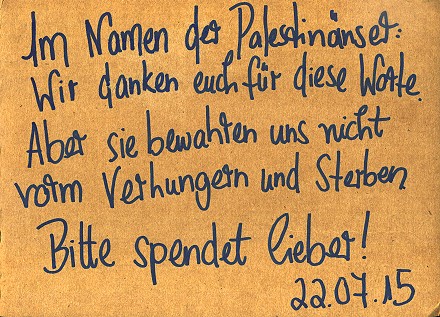 Im Namen der Palestinänser:
Wir danken euch für diese Worte.
Aber sie bewahren uns nicht
vorm Verhungern und Sterben
Bitte spendet lieber!
22.07.15